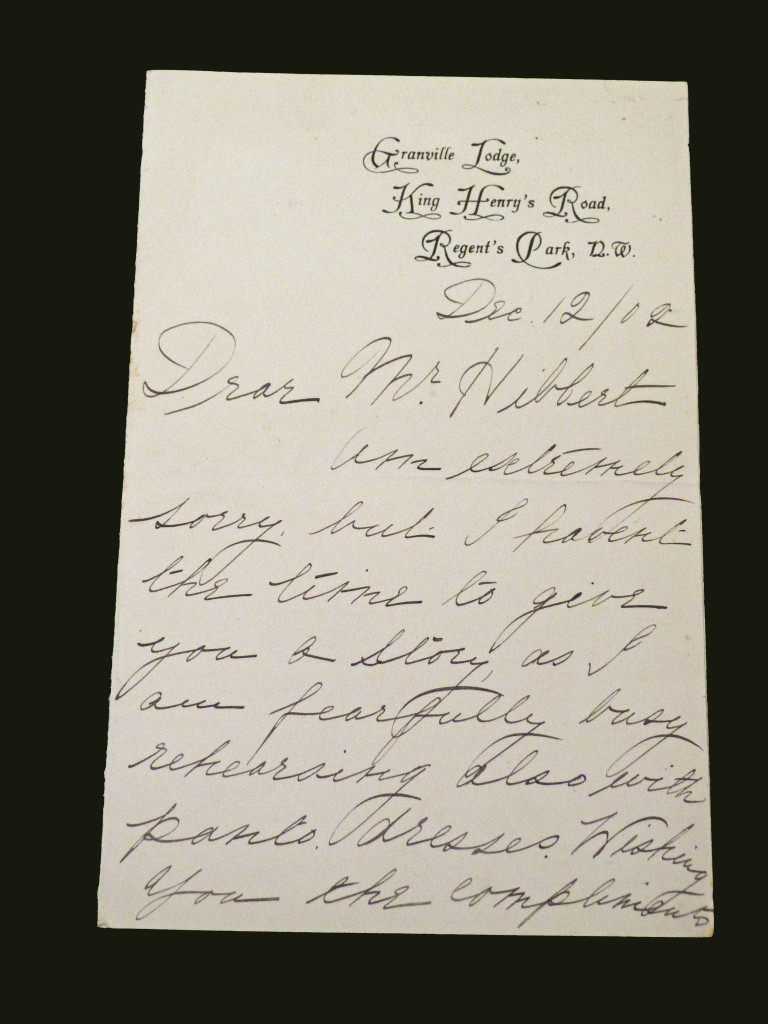 Granville Lodge,
King Henry's Road,
Regent's Park, N.W.
Dec. 12/02
Dear Mr. Hibbert
Am extremely
sorry, but I havent
the time to give
you a story, as I
am fearfully busy
rehearsing also with
panto. dresses. Wishing
you the compliments